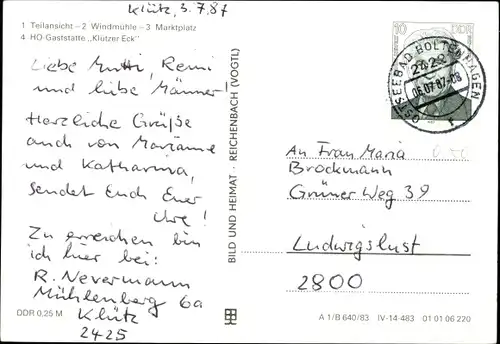 Klütz, 3.7.87
1 Teilansicht – 2 Windmühle – 3 Marktplatz
4 HO-Gaststätte „Klützer Eck"
Liebe Mutti, Reni
und liebe Männer!
Herzliche Grüße
auch von Marianne
und Katharina,
sendet Euch Euer
Uwe!
Zu erreichen bin
ich hier bei:
R. Nevermann
Mühlenberg 6a
Klütz
2425
DDR 0,25 M
BILD UND HEIMAT · REICHENBACH (VOGTL)
10 DDR
OSTSEEBAD BOLTENHAGEN
2423
06.07.87-08
f
An Frau Maria
Brockmann
Grüner Weg 39
Ludwigslust
2800
A 1/B 640/83 IV-14-483 01 01 06 220